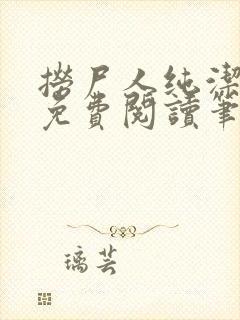 撈尸人純潔
免費閱讀筆
璃芸